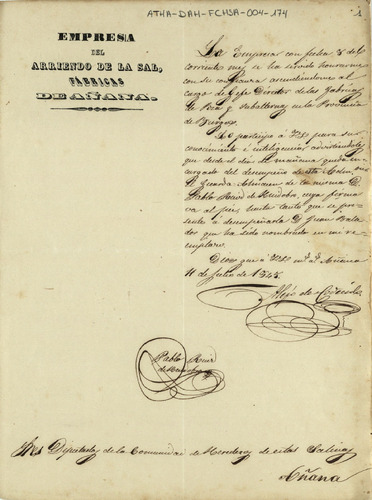 ATHA-DAH-FCHSA-004-174
1
EMPRESA
DEL
ARRIENDO DE LA SAL,
FÁBRICAS
DE AÑANA.
La Empresa con fecha 8 del
corriente me ha servido honrarme
con su confianza acendiendome al
cargo de Gefe Director de las Fabricas
de Poza y subalternas en la Provincia
de Burgos.
Lo participo a VSS para su
conocimiento é inteligencia advirtiendoles
que desde el dia de mañana queda en-
cargado del desempeño de esta Admon
el Guarda Almacen de la misma D.
Pablo Ruiz de cuya firma
va al pie, hasta tanto que se pre-
sente a desempeñarla D. Juan
que ha sido nombrado en mi re-
emplazo.
Dios gue a VSS ms as Añana
11 de Julio de 1845.
Alejo de
Pablo Ruiz
de
Sres Diputados de la Comunidad de Herederos de estas Salinas
Añana